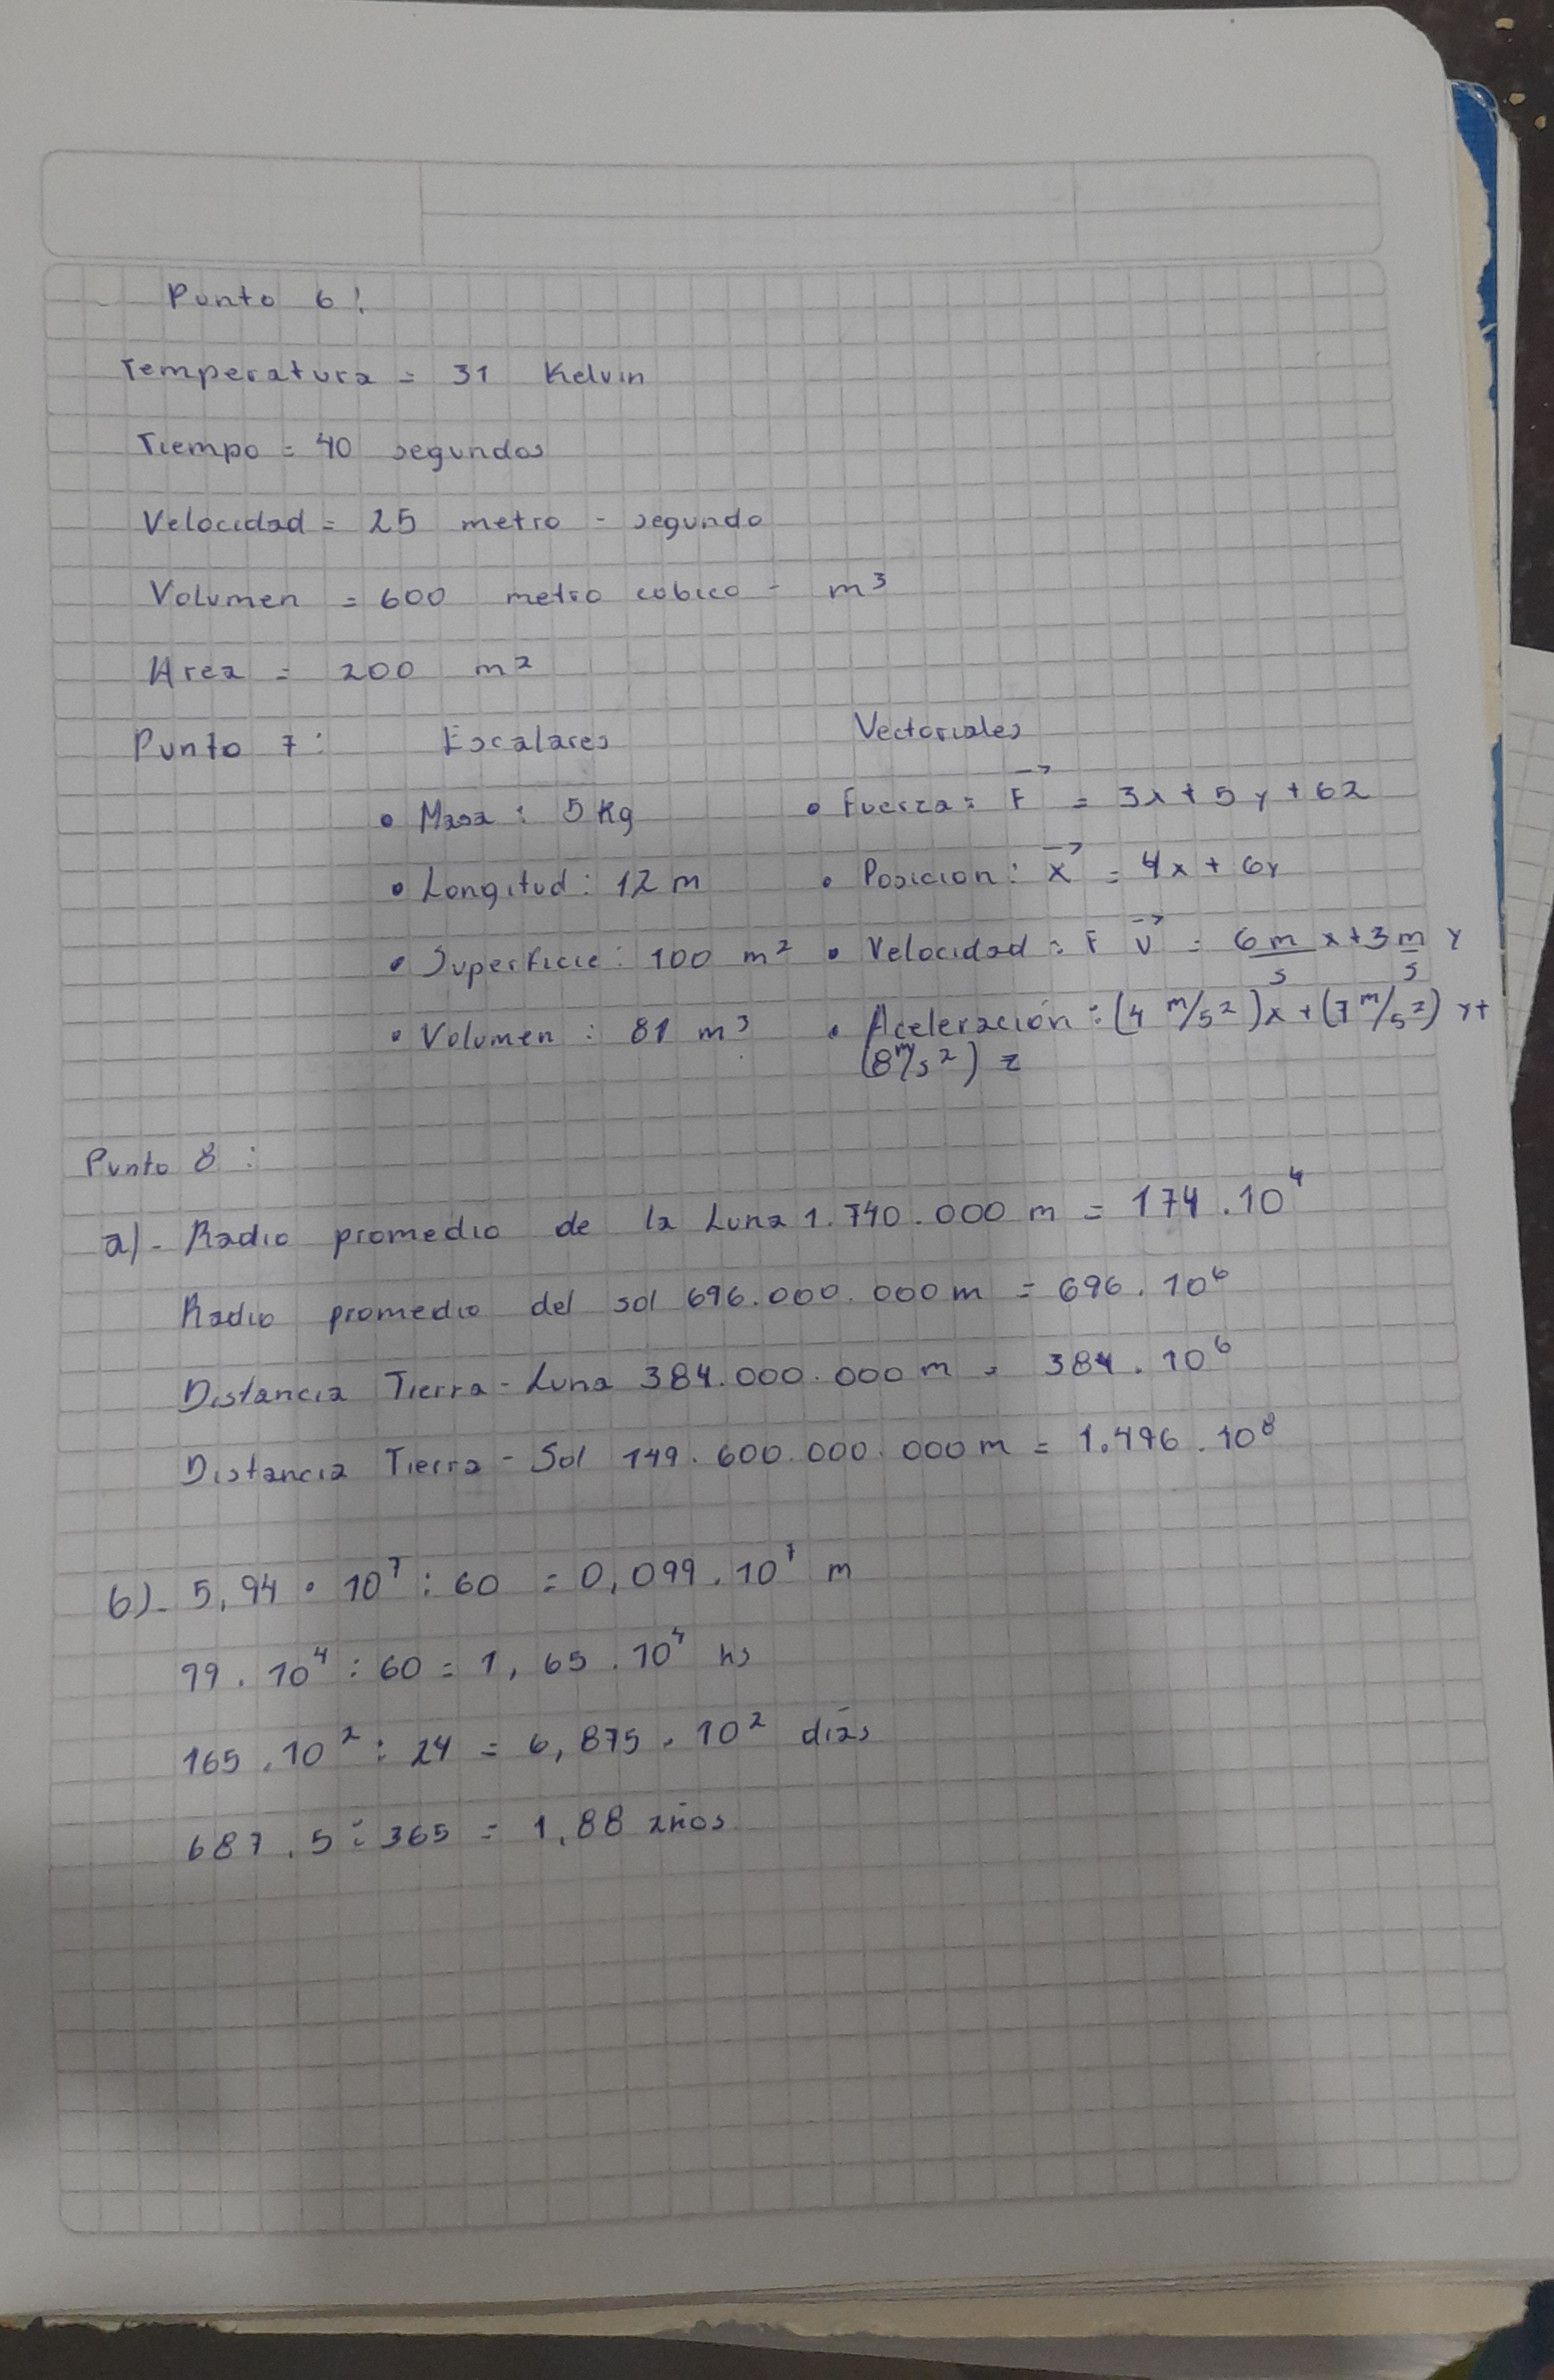 Punto 6:
Temperatura = 31 Kelvin
Tiempo = 40 segundos
Velocidad = 25 metro - segundo
Volumen = 600 metro cubico - m³
Area = 200 m²
Punto 7: Escalares Vectoriales
• Masa : 5 Kg • Fuerza = F⃗ = 3x + 5y + 6z
• Longitud : 12 m • Posicion : x⃗ = 4x + 6y
• Superficie : 100 m² • Velocidad = F v⃗ = 6m/s x + 3m/s y
• Volumen : 81 m³ • Aceleración : (4 m/s²)x + (7 m/s²) y +
(8 m/s²) z
Punto 8 :
a)- Radio promedio de la Luna 1.740.000 m = 174 . 10⁴
Radio promedio del sol 696.000.000 m = 696 . 10⁶
Distancia Tierra - Luna 384.000.000 m = 384 . 10⁶
Distancia Tierra - Sol 149.600.000.000 m = 1.496 . 10⁸
b)- 5,94 • 10⁷ : 60 = 0,099 . 10⁷ m
99 . 10⁴ : 60 = 1,65 . 10⁴ hs
165 . 10² : 24 = 6,875 . 10² dias
687.5 : 365 = 1,88 años